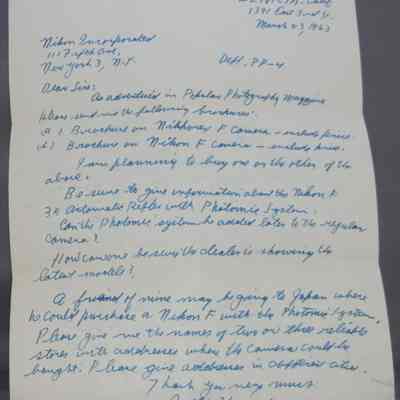 1341 East 3rd St.
March 27, 1963
Nikon Incorporated
111 Fifth Ave,
New York 3, N.Y.
Dept. PP-4
Dear Sirs:
As advertised in Popular Photography Magazine
please send me the following brochures.
1 Brochure on Nikkorex F Camera – include prices.
1 Brochure on Nikon F Camera – include prices.
I am planning to buy one or the other of the
above.
Be sure to give information about the Nikon F
35 Automatic Reflex with Photomic System.
Can the Photomic system be added later to the regular
camera?
How can one be sure the dealer is showing the
latest models?
A friend of mine may be going to Japan where
he could purchase a Nikon F with the Photomic System.
Please give me the names of two or three reliable
stores with addresses where the camera could be
bought. Please give addresses in different cities.
Thank you very much.